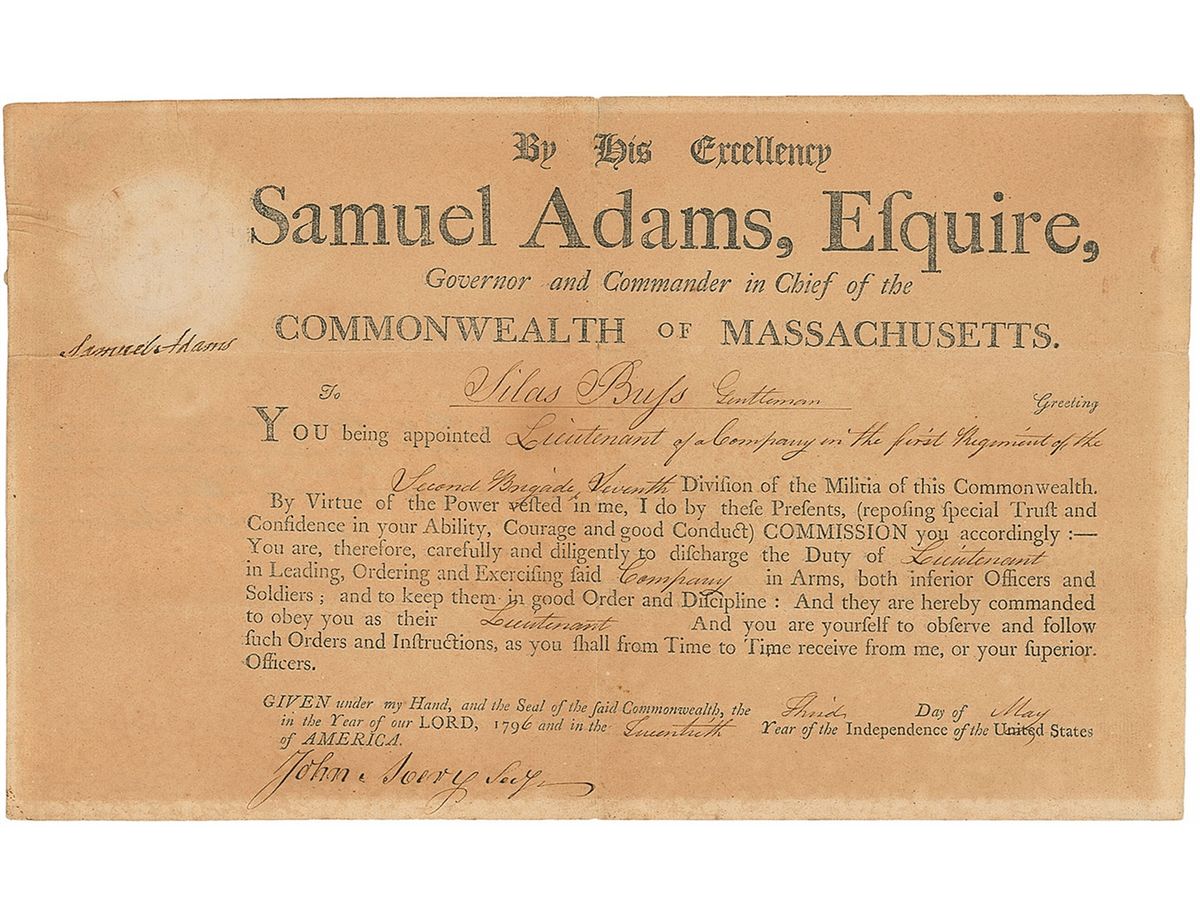 By His Excellency
Samuel Adams, Eſquire,
Governor and Commander in Chief of the
COMMONWEALTH OF MASSACHUSETTS.
Samuel Adams
To Silas Buſs Gentleman Greeting
YOU being appointed Lieutenant of a Company in the first Regiment of the
Second Brigade, Seventh Diviſion of the Militia of this Commonwealth.
By Virtue of the Power veſted in me, I do by theſe Preſents, (repoſing ſpecial Truſt and
Confidence in your Ability, Courage and good Conduct) COMMISSION you accordingly :—
You are, therefore, carefully and diligently to diſcharge the Duty of Lieutenant
in Leading, Ordering and Exerciſing ſaid Company in Arms, both inferior Officers and
Soldiers ; and to keep them in good Order and Diſcipline : And they are hereby commanded
to obey you as their Lieutenant And you are yourſelf to obſerve and follow
ſuch Orders and Inſtructions, as you ſhall from Time to Time receive from me, or your ſuperior
Officers.
GIVEN under my Hand, and the Seal of the ſaid Commonwealth, the Third Day of May
in the Year of our LORD, 1796 and in the Twentieth Year of the Independence of the United States
of AMERICA.
John Avery Secy